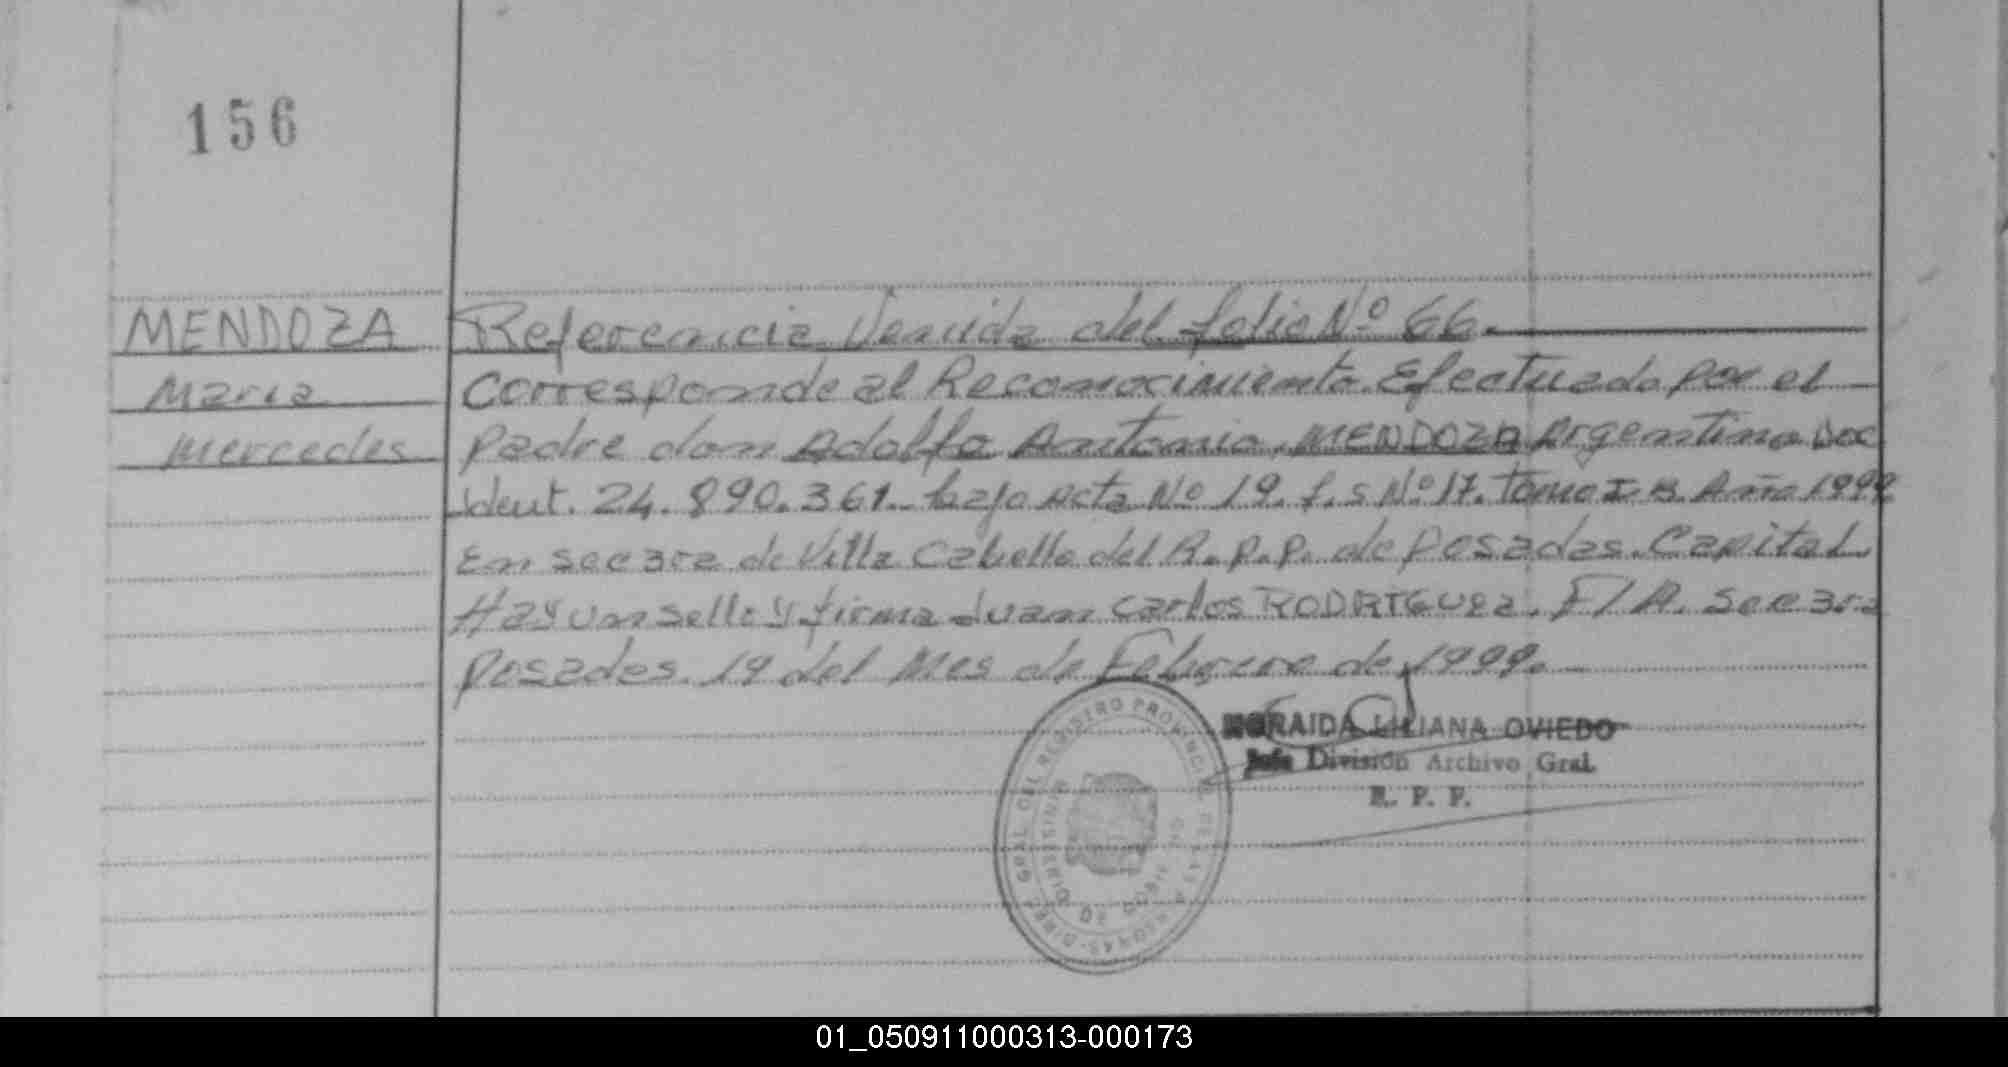 156
MENDOZA
Maria
Mercedes
Referencia Venida del folio Nº 66.
Corresponde al Reconocimiento Efectuado por el
Padre don Adolfo Antonio MENDOZA Argentino Doc
Ident. 24.890.361. bajo Acta Nº 19. f.s Nº 17. Tomo I Año 1999
En Sec 3ra de Villa Cabello del R.P.P. de Posadas. Capital
Hay un sello y firma Juan Carlos RODRIGUEZ. F/A. Sec 3ra
Posadas. 19 del Mes de Febrero de 1999.
NORAIDA LILIANA OVIEDO
Jefa División Archivo Gral.
R. P. P.
DIREC. GRAL. DEL REGISTRO PROVINCIAL DE LAS PERSONAS
01_050911000313-000173